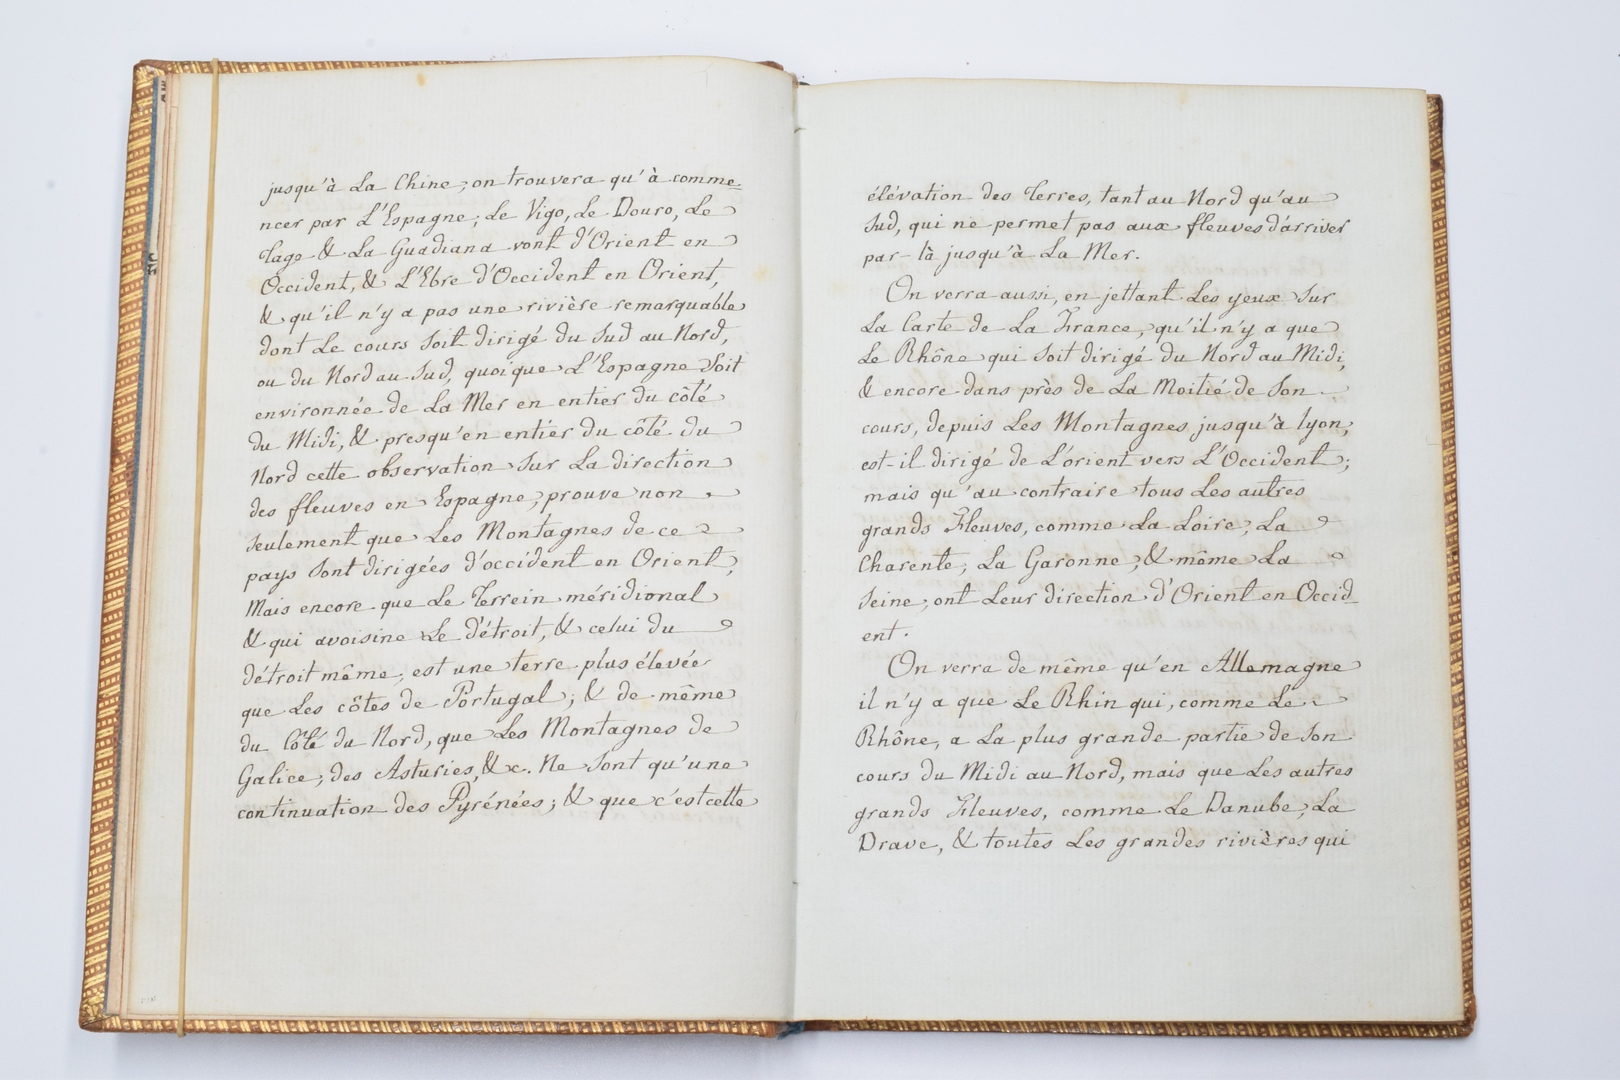 jusqu'à La Chine; on trouvera qu'à comme-
ncer par L'Espagne; Le Vigo, Le Douro, Le
Tage & La Guadiana vont d'Orient en
Occident, & L'Ebre d'Occident en Orient,
& qu'il n'y a pas une rivière remarquable
dont Le cours soit dirigé du Sud au Nord,
ou du Nord au Sud, quoique L'Espagne Soit
environnée de La Mer en entier du côté
du Midi, & presqu'en entier du côté du
Nord cette observation Sur La direction
des fleuves en Espagne, prouve non
seulement que Les Montagnes de ce
pays Sont dirigées d'occident en Orient,
Mais encore que Le Terrein méridional
& qui avoisine Le détroit, & celui du
détroit même, est une terre plus élevée
que Les côtes de Portugal; & de même
du Côté du Nord, que Les Montagnes de
Galice, des Asturies, &c. Ne Sont qu'une
continuation des Pyrénées; & que c'est cette
élévation des Terres, tant au Nord qu'au
Sud, qui ne permet pas aux fleuves d'arriver
par-là jusqu'à La Mer.
On verra aussi, en jettant Les yeux Sur
La Carte de La France, qu'il n'y a que
Le Rhône qui Soit dirigé du Nord au Midi,
& encore dans près de La Moitié de Son
cours, depuis Les Montagnes jusqu'à lyon,
est-il dirigé de L'orient vers L'Occident;
mais qu'au contraire tous Les autres
grands Fleuves, comme La Loire, La
Charente, La Garonne, & même La
Seine, ont Leur direction d'Orient en Occid-
ent.
On verra de même qu'en Allemagne
il n'y a que Le Rhin qui, comme Le
Rhône, a La plus grande partie de Son
cours du Midi au Nord, mais que Les autres
grands Fleuves, comme Le Danube, La
Drave, & toutes Les grandes rivières qui